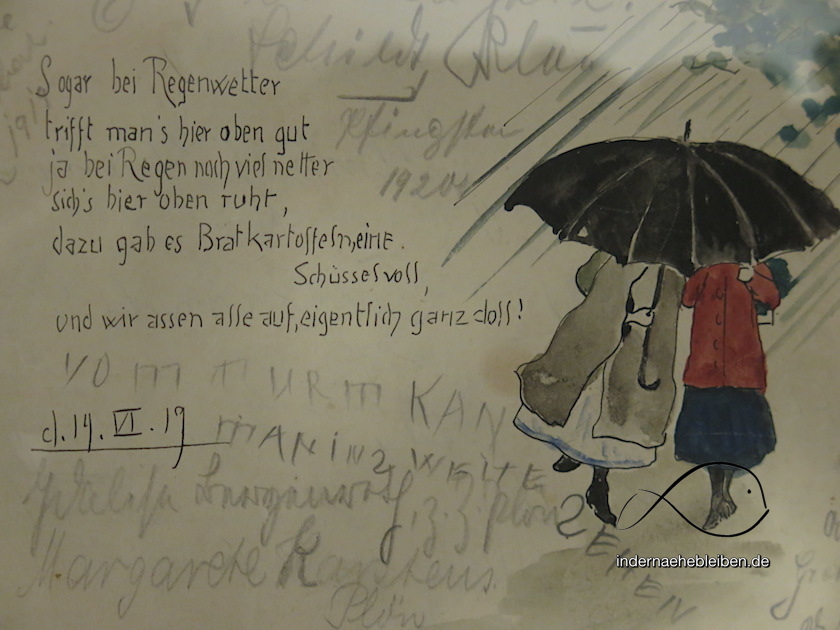 Schildt Plön
Pfingsten
1920
Sogar bei Regenwetter
trifft man's hier oben gut
ja bei Regen noch viel netter
sich's hier oben ruht,
dazu gab es Bratkartoffeln, eine
Schüssel voll,
und wir assen alle auf, eigentlich ganz doll!
VOM TURM KAN
MAN INZ WEITE
ZEHEN
d. 14. VI. 19
z. Z. Plön
Margarete Karstens
Plön
indernaehebleiben.de